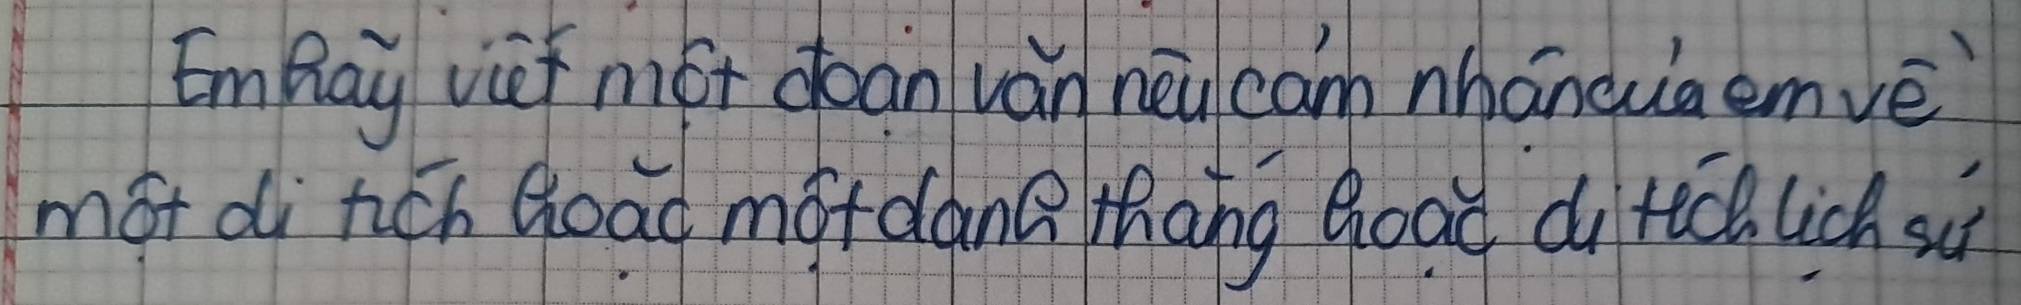 Em hãy viết một đoạn văn nêu cảm nhận của em về
một di tích hoặc một danh thắng hoặc di tích lịch sử